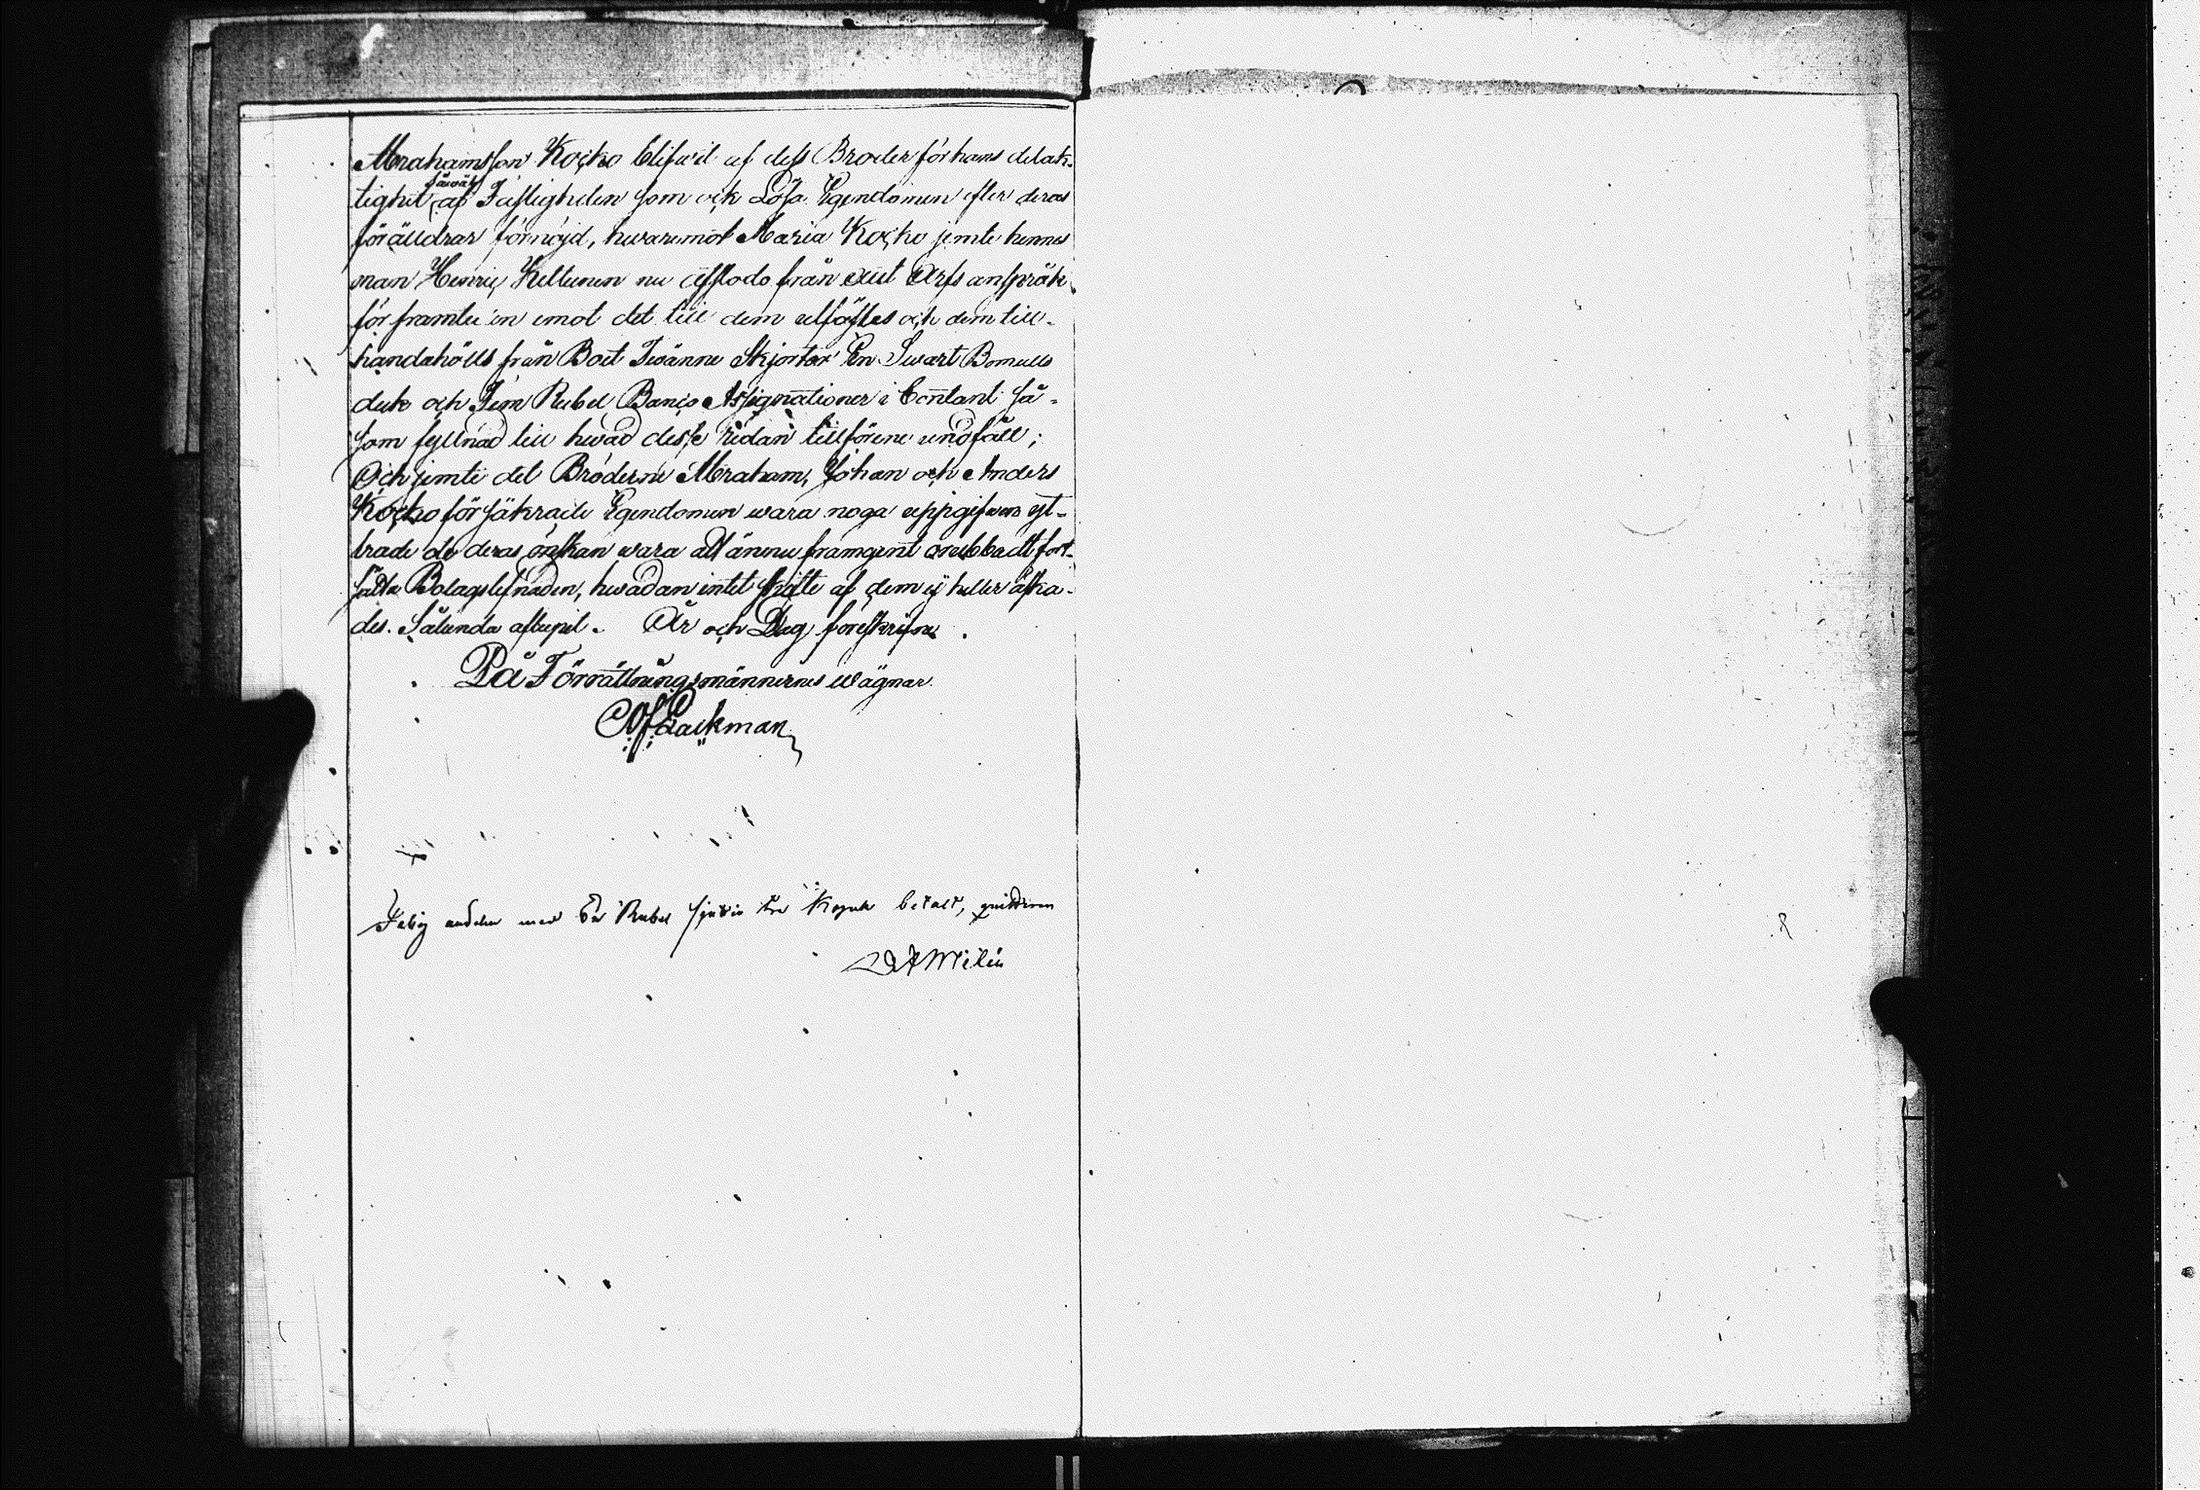 Abrahamsson Kocko blifwit af dess Broder för hans delak-
tighet såwäl af Fastigheten som ock Lösa Egendomen efter deras
föräldrar förnöjd, hwaremot Maria Kocko jemte hennes
man Henric Keltunen nu afstodo från allt Arfs anspråk
för framtiden emot det till dem utfästes och dem till-
handahölls från Boet Twänne Skjortor En Swart Bomulls
duk och Fem Rubel Banco Assignationer i Contant så-
som fyllnad till hwad desse redan tillförene undfått;
Och jemte det Bröderne Abraham, Johan och Anders
Kocko försäkrade Egendomen wara noga uppgifwen ytt-
rade de deras önskan wara att ännu framgent orubbadt fort-
sätta Bolagslefnaden, hwadan intet skifte af dem ej heller äska-
des. Sålunda aflupit. År och Dag förskrifne.
På Förrättningsmännernes wägnar
Lackman
Fattig andelen med En Rubel sjutio tre Kopek betalt, qvitteras